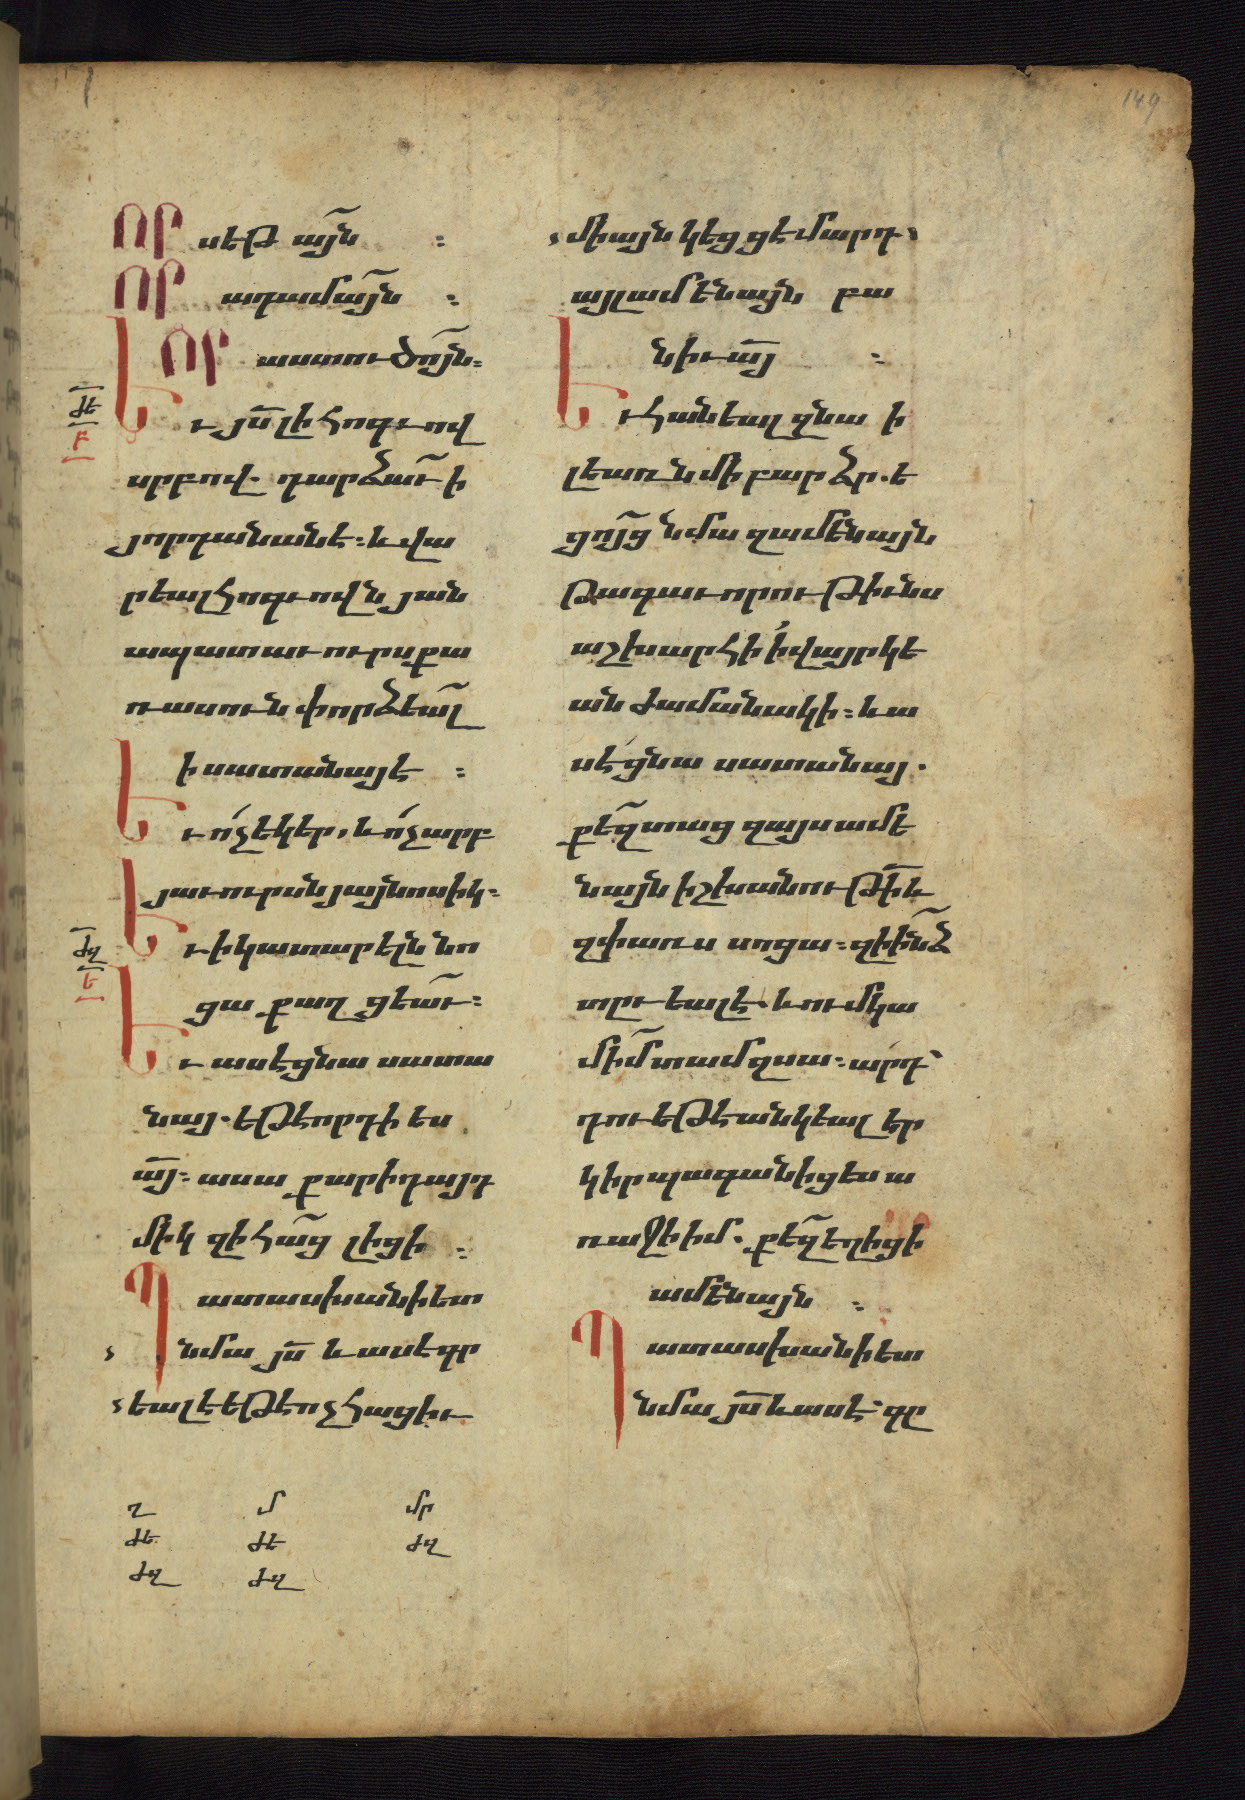 149
ՈՐ սեթ ա՟յն :
ՈՐ ադամա՟յն :
ՈՐ աստուծո՟յն :
ԺԵ
Բ
Եւ յ՟ս լի հոգւով
սրբով. դարձա՟ւ ի
յորդանանէ : և վա
րեալ հոգւովն յան
ապատ աւուրս քա
ռասուն փորձեա՟լ
ի սատանայէ :
Եւ ո՛չ եկեր, և ո՛չ արբ
յաւուրսն յայնոսիկ :
ԺԶ
Ե
Եւ ի կատարելն նո
ցա քաղցեա՟ւ :
Եւ ասէ ցնա սատա
նայ. եթէ որդի ես
ա՟յ : ասա քարիդ այդ
միկ զի հա՟ց լիցի :
Պատասխանի ետ
նմա յ՟ս և ասէ գր
եալ է եթէ ոչ հացիւ
միայն կեցցէ մարդ
այլ ամենայն բա
նիւ ա՟յ :
Եւ հանեալ զնա ի
լեառն մի բարձր. ե
ցո՟յց նմա զամենայն
թագաւորութիւնս
աշխարհի ի վայրկե
ան ժամանակի : և ա
սէ ցնա սատանայ.
քե՟զ տաց զայս ամե
նայն իշխանութի՟ և
զփառս սոցա : զի ի՟նձ
տըւեալ է. և ում կա
միմ տամ զսա : արդ՝
դու եթէ անկեալ եր
կիր պագանիցես ա
ռաջի իմ. քե՟զ եղիցի
ամենայն :
Պատասխանի ետ
նմա յ՟ս և ասէ՝ գր
Ղ Մ ՄՐ
ԺԵ ԺԵ ԺԶ
ԺԶ ԺԶ